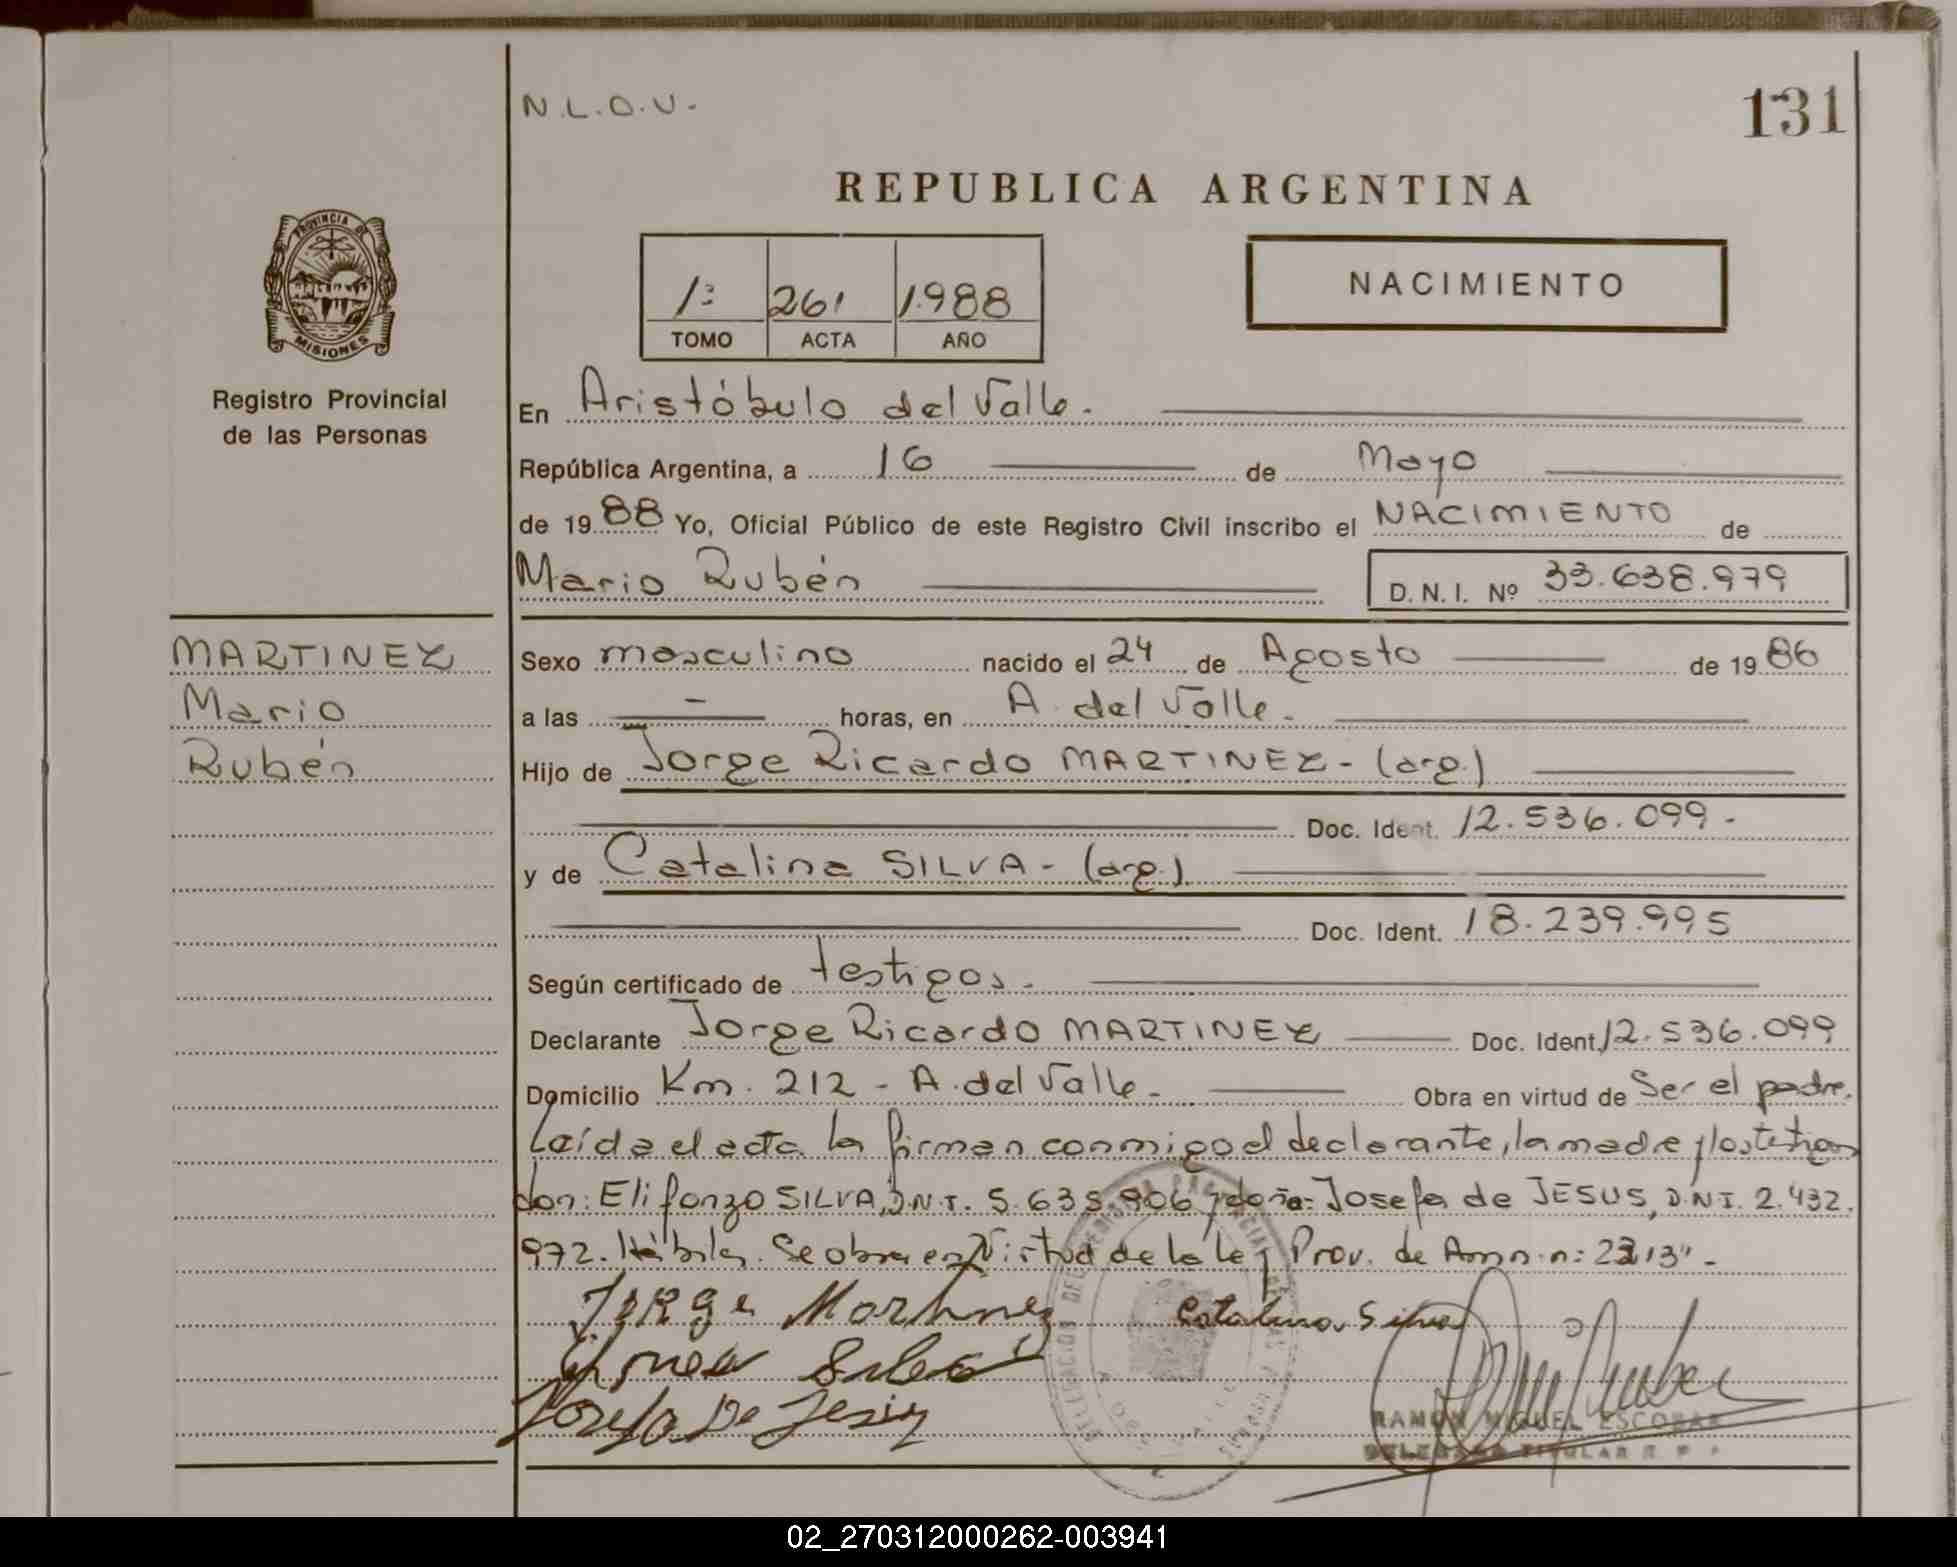 N.L.O.U.
131
REPUBLICA ARGENTINA
PROVINCIA DE
MISIONES
Registro Provincial
de las Personas
1º 261 1.988
TOMO ACTA AÑO
NACIMIENTO
En Aristóbulo del Valle.
República Argentina, a 16 de Mayo
de 19 88 Yo, Oficial Público de este Registro Civil inscribo el NACIMIENTO de
Mario Rubén D.N.I. Nº 33.638.979
MARTINEZ
Mario
Rubén
Sexo masculino nacido el 24 de Agosto de 19 86
a las - horas, en A. del Valle.
Hijo de Jorge Ricardo MARTINEZ - (arg.)
Doc. Ident. 12.536.099.-
y de Catalina SILVA - (arg.)
Doc. Ident. 18.239.995
Según certificado de testigos.
Declarante Jorge Ricardo MARTINEZ Doc. Ident. 12.536.099
Domicilio Km. 212 - A. del Valle. Obra en virtud de Ser el padre.
Leída el acta la firman conmigo el declarante, la madre y los testigos
don: Elifonzo SILVA, D.N.I. 5.635.906 y doña: Josefa de JESUS, D.N.I. 2.432.
972. Hábiles. Se obra en Virtud de la Ley Prov. de Amn. n: 2213".-
Jorge Martinez Catalina Silva
Silva
Josefa De Jesus
RAMON MIGUEL ESCOBAR
DELEGADO TITULAR R. P. P.
02_270312000262-003941